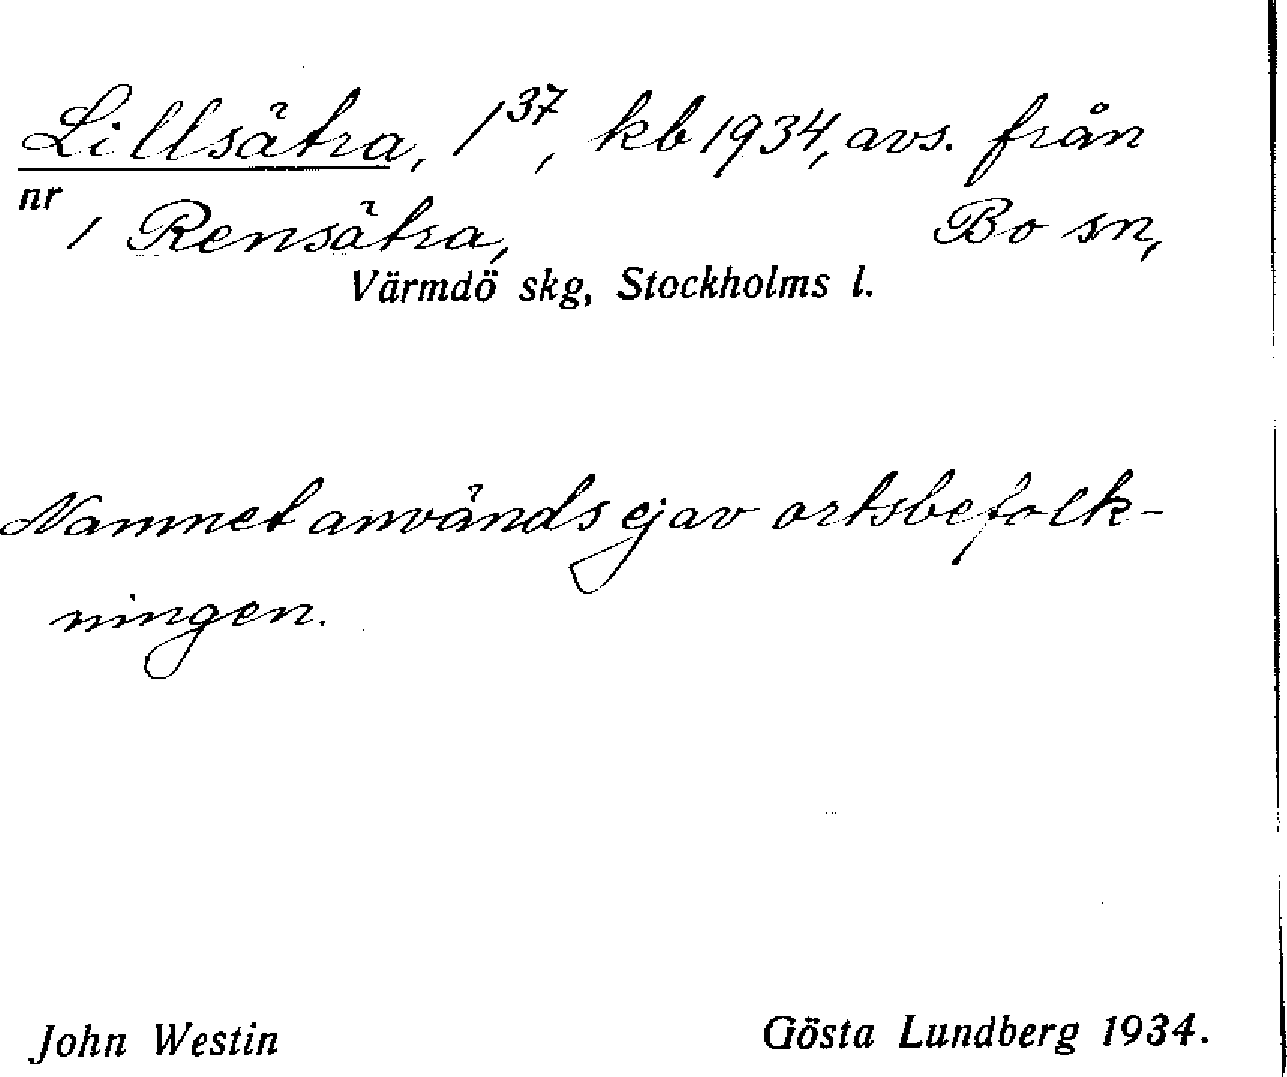 Lillsätra, 1³⁷, kb 1934, avs. från
nr 1 Rensätra, Bo sn,
Värmdö skg, Stockholms l.
Namnet används ej av ortsbefolk-
ningen.
John Westin Gösta Lundberg 1934.